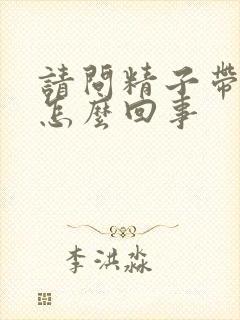 請問精子帶
怎麼回事
李洪淼